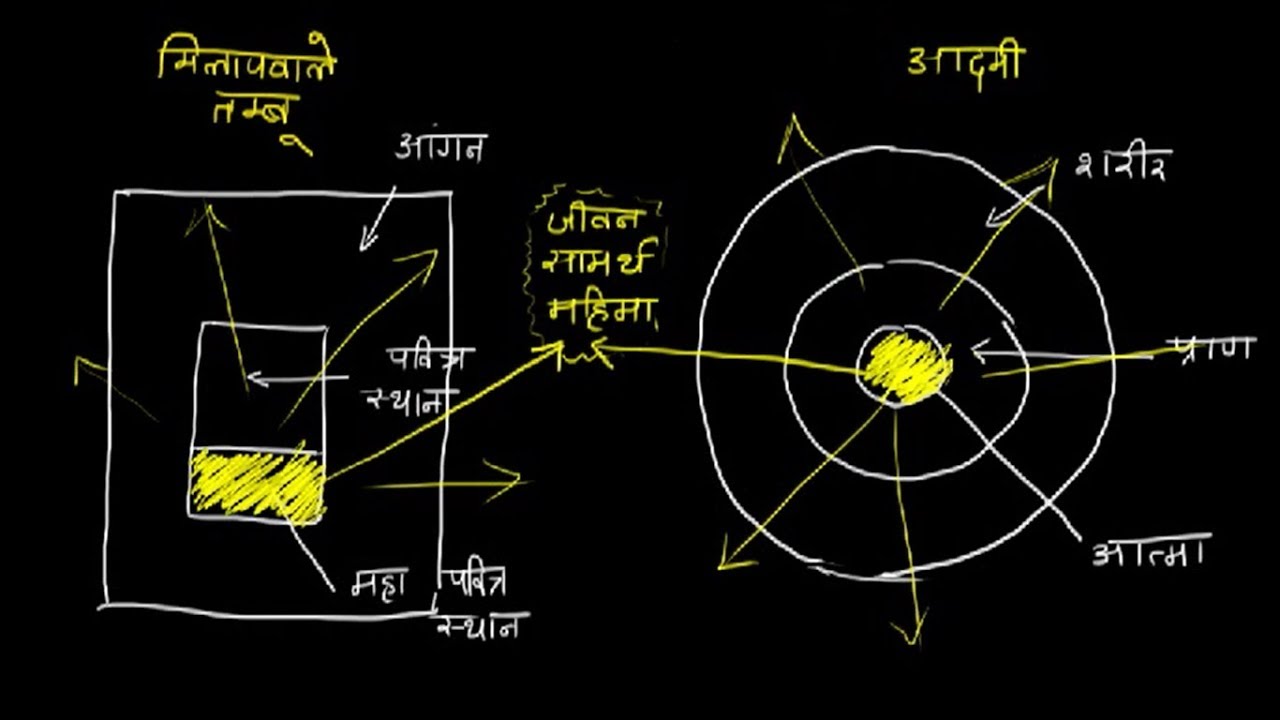 मिलापवाले
तम्बू
आंगन
पवित्र
स्थान
महा पवित्र
स्थान
जीवन
सामर्थ
महिमा
आदमी
शरीर
प्राण
आत्मा